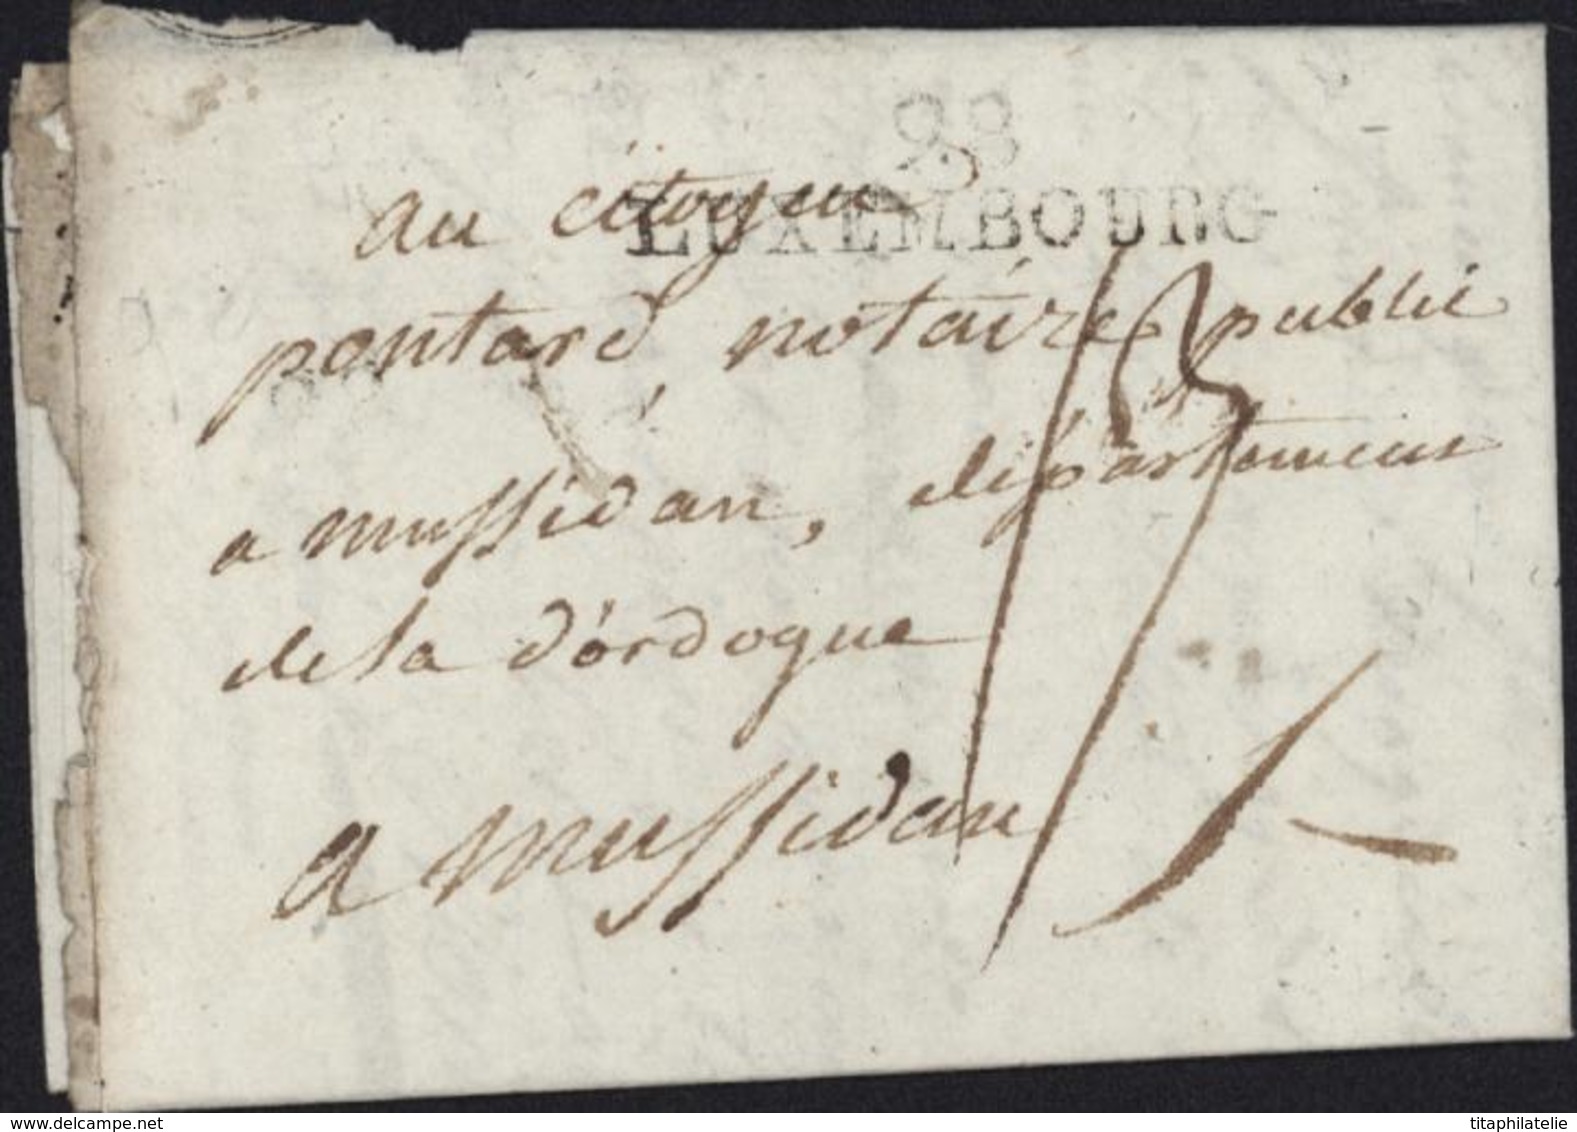 98
LUXEMBOURG
au citoyen
pontard notaire public
a mussidan, département
de la dordogne
a mussidan
www.delcampe.net
titaphilatelie